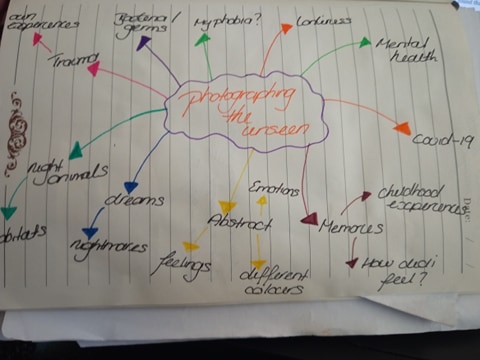 Bacteria/
germs
My phobia?
Lonliness
experiences
Trauma
Mental
health
photographing
the
unseen
Covid-19
night
animals
dreams
nightmares
Emotions
Abstract
feelings
different
colours
Memories
childhood
experiences
How did i
feel?